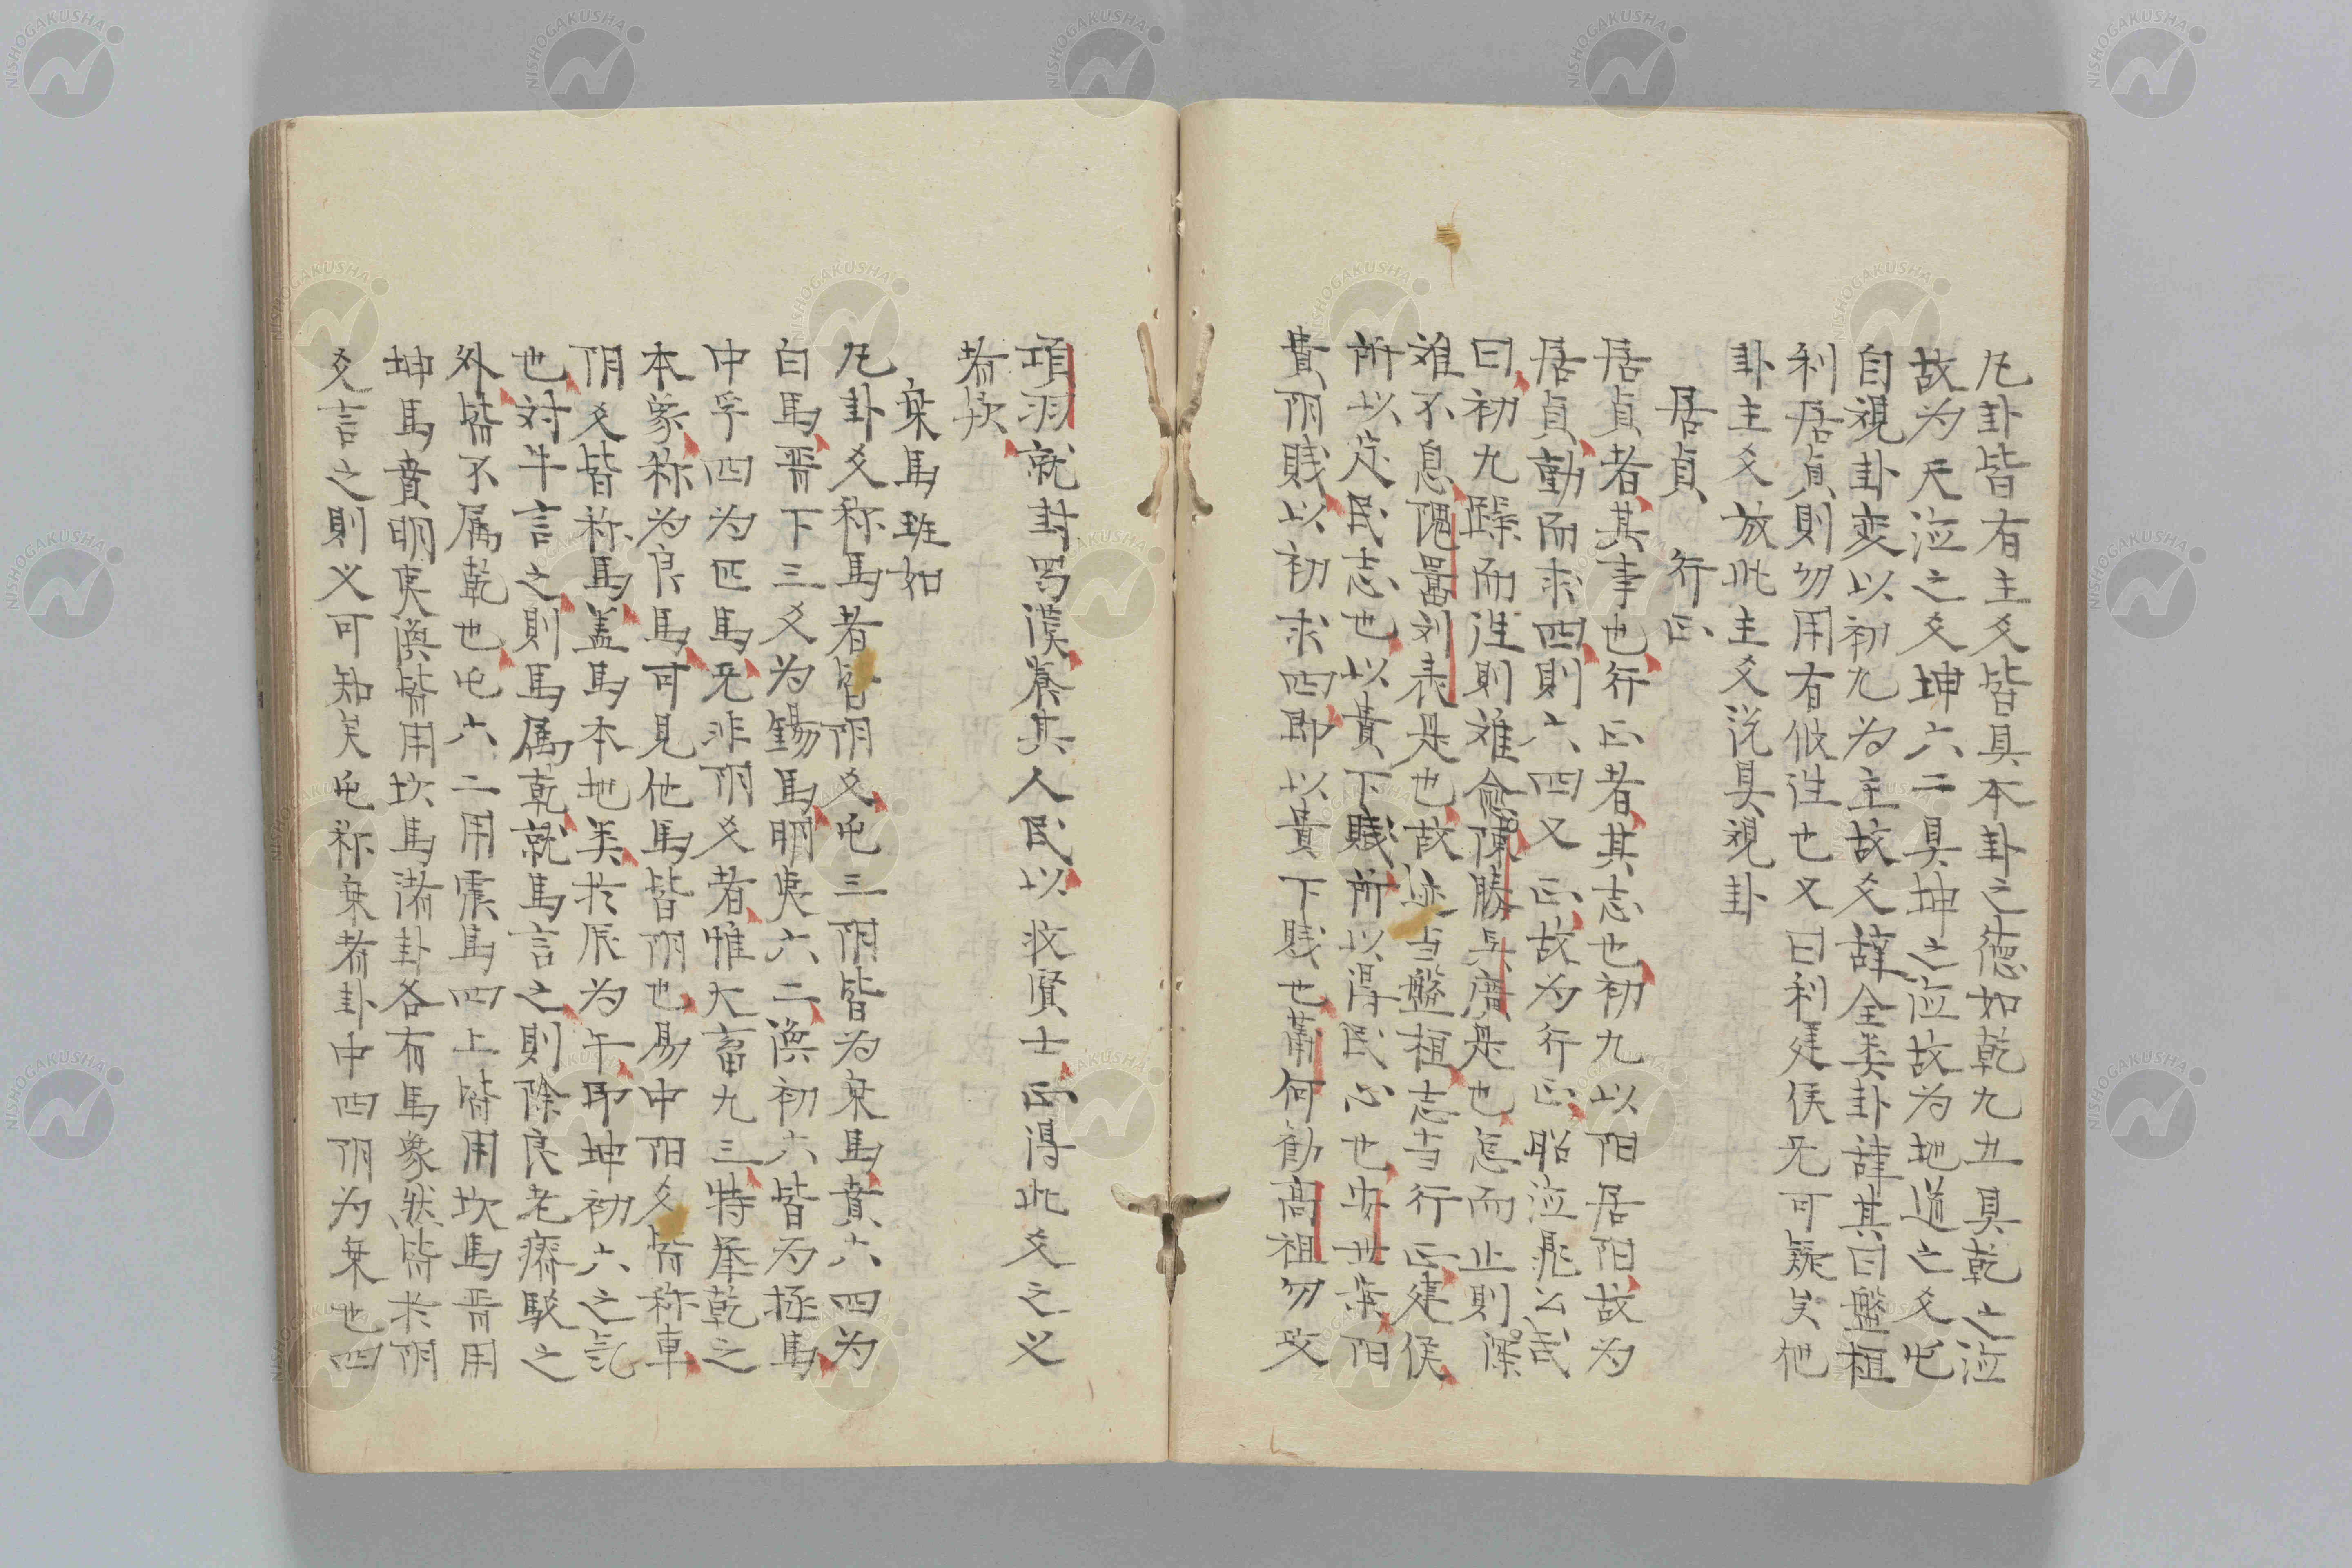 凡卦皆有主爻皆具本卦之德如乾九五具乾之㳒
故为天㳒之爻坤六二具坤之㳒故为地道之爻屯
自視卦变以初九为主故爻辞全类卦辞其曰盤桓
利居貞則勿用有攸往也又曰利建侯无可疑矣他
卦主爻放此主爻説具視卦
居貞　行正
居貞者其事也行正者其志也初九以阳居阳故为
居貞動而求四則六四又正故为行正昭㳒晁公武
曰初九躁而往則难愈陳勝吳廣是也怠而止則深
难不息隗囂刘表是也故迹当盤桓志当行正建侯
所以定民志也以貴下賤所以得民心也安世案阳
貴阴賤以初求四即以貴下賤也蕭何勧高祖勿攻
項羽就封蜀漢養其人民以收賢士正得此爻之义
者欤
乘馬班如
凡卦爻称馬者皆阴爻屯三阴皆为乘馬賁六四为
白馬晋下三爻为錫馬明夷六二渙初六皆为拯馬
中孚四为匹馬无非阴爻者惟大畜九三特舉乾之
本象称为良馬可見他馬皆阴也易中阳爻皆称車
阴爻皆称馬盖馬本地类於辰为午即坤初六之气
也対牛言之則馬属乾就馬言之則除良老瘠駁之
外皆不属乾也屯六二用震馬四上皆用坎馬晋用
坤馬賁明夷渙皆用坎馬諸卦各有馬象然皆於阴
爻言之則义可知矣屯称乘者卦中四阴为乘也四
NISHOGAKUSHA